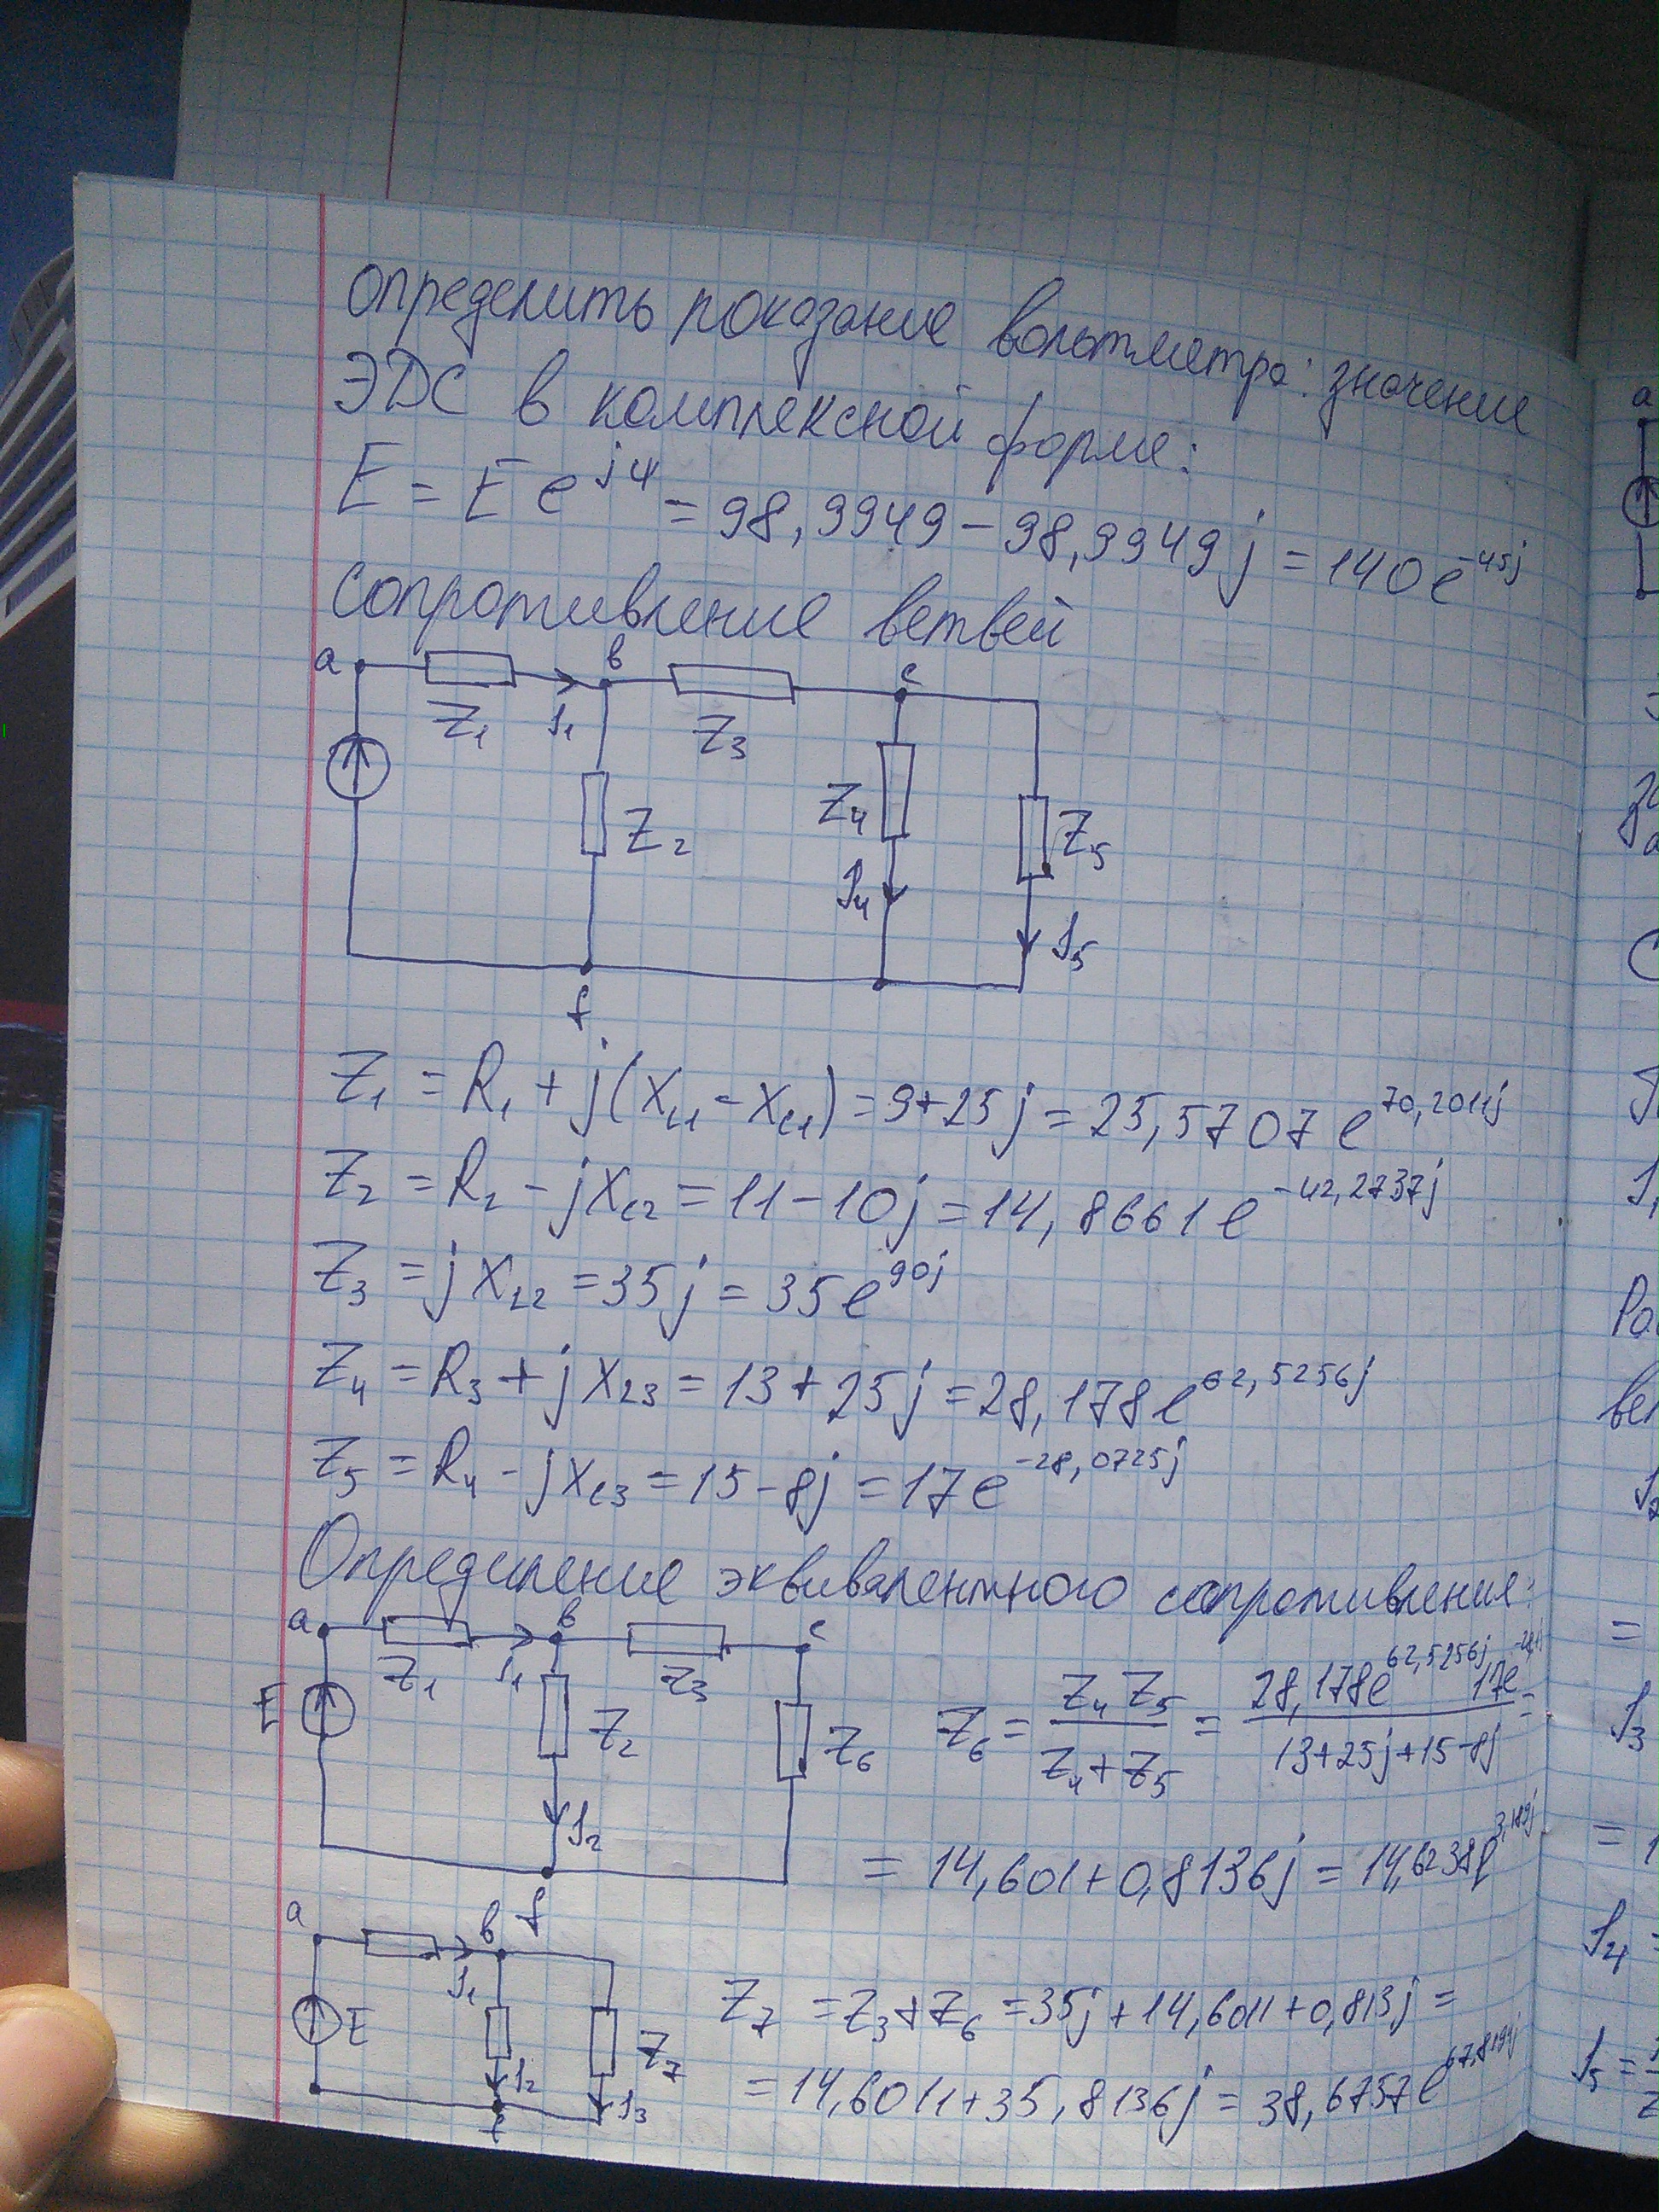 определить показание вольтметра: значение
ЭДС в комплексной форме:
E = E e^jψ = 98,9949 - 98,9949j = 140e^-45j
сопротивление ветвей
a b c
Z1 I1 Z3
Z2 Z4 Z5
I4 I5
f
Z1 = R1 + j(XL1 - XC1) = 9+25j = 25,5707 e^70,2011j
Z2 = R2 - jXC2 = 11 - 10j = 14,8661 e^-42,2737j
Z3 = jXL2 = 35j = 35e^90j
Z4 = R3 + jXL3 = 13 + 25j = 28,178e^62,5256j
Z5 = R4 - jXC3 = 15 - 8j = 17e^-28,0725j
Определение эквивалентного сопротивления:
a b c
Z1 I1 Z3
E Z2 Z6
I2
f
Z6 = Z4 Z5 / Z4+Z5 = 28,178e^62,5256j 17e / 13+25j+15-8j =
= 14,6011+0,8136j = 14,6238e^3,189j
a b
I1
E Z7
I2 I3
f
Z7 = Z3+Z6 = 35j + 14,6011+0,813j =
= 14,6011+35,8136j = 38,6757e^67,8199j
a
вет
I2
=
I3
=
I4 =
I5 =